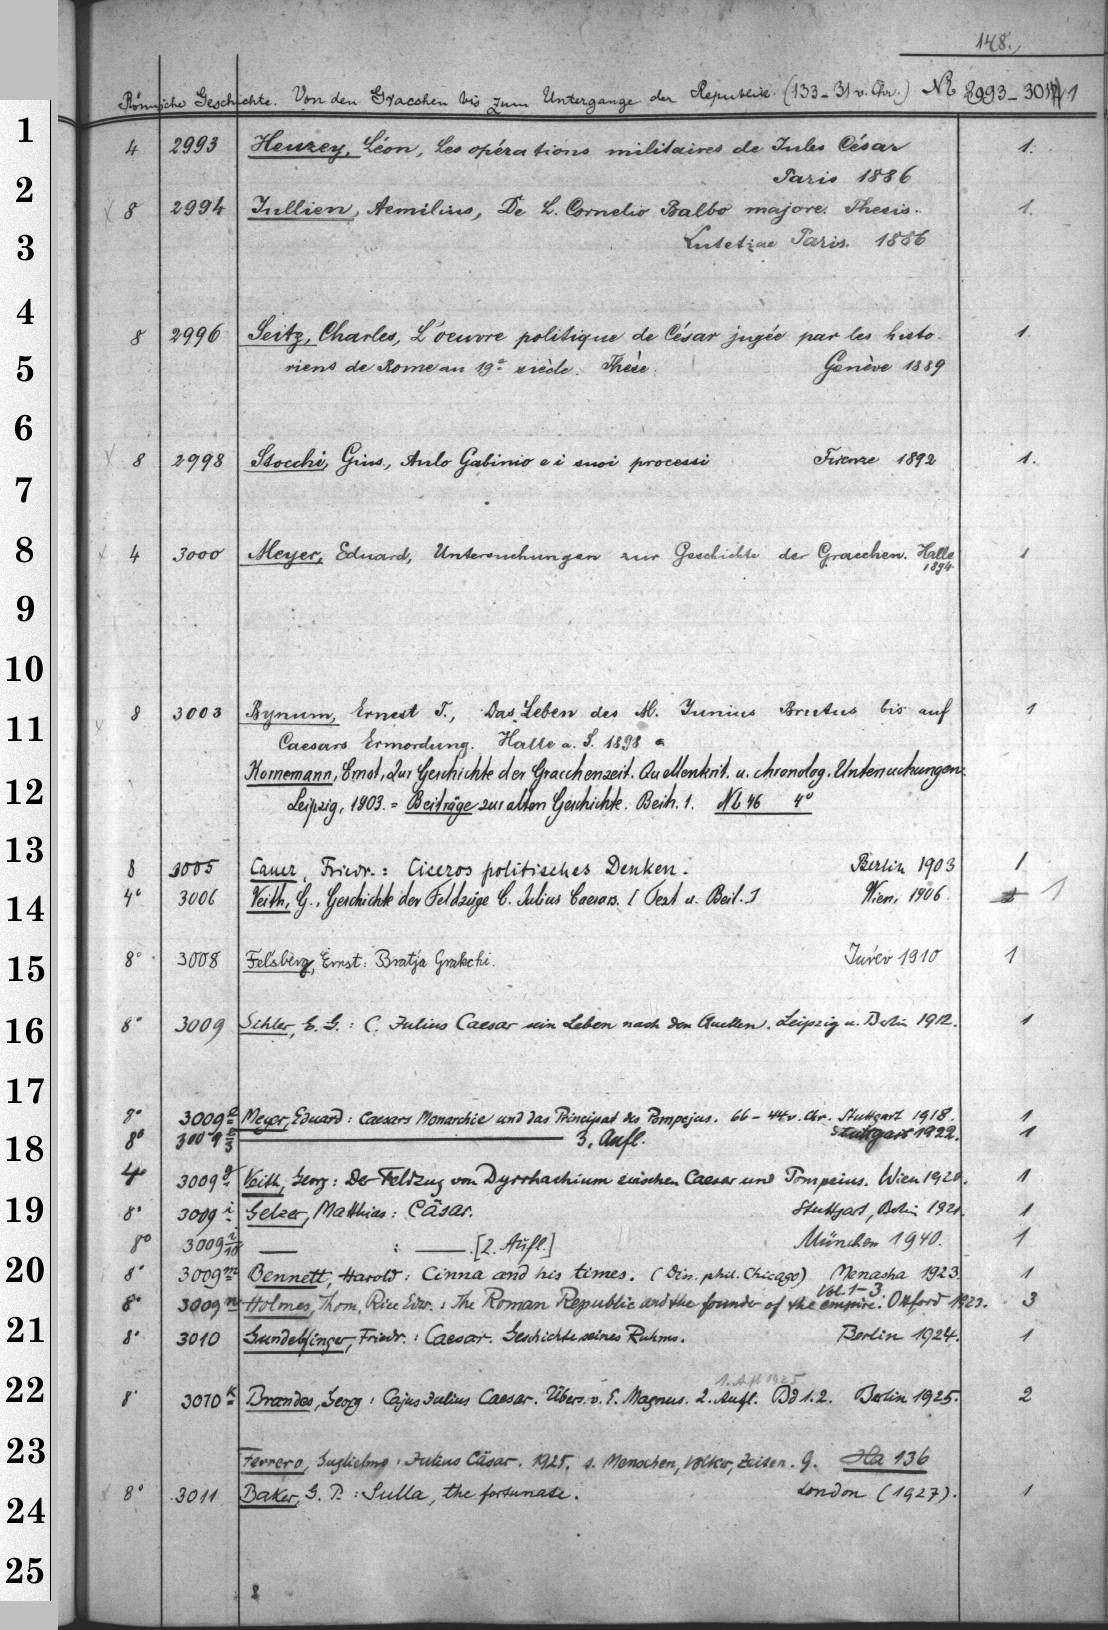 148.
Römische Geschichte. Von den Gracchen bis zum Untergange der Republik. (133-31 v. Chr.) No 2993-3011
1
4 2993 Heuzey, Léon, Les opérations militaires de Jules César 1.
2
Paris 1886
8 2994 Jullien, Aemilius, De L. Cornelio Balbo majore. Thesis. 1.
3
Lutetiae Paris. 1886
4
8 2996 Seitz, Charles, L'oeuvre politique de César jugée par les histo- 1
5
riens de Rome au 19e siècle. Thèse. Genève 1889
6
8 2998 Stocchi, Gius., Aulo Gabinio e i suoi processi Firenze 1892 1.
7
8
4 3000 Meyer, Eduard, Untersuchungen zur Geschichte der Gracchen. Halle 1
1894
9
10
8 3003 Bynum, Ernest T., Das Leben des M. Junius Brutus bis auf 1
11
Caesars Ermordung. Halle a. S. 1898
Kornemann, Ernst, Zur Geschichte der Gracchenzeit. Quellenkrit. u. chronolog. Untersuchungen.
12
Leipzig, 1903. = Beiträge zur alten Geschichte. Beih. 1. Nb 46 4°
13
8 3005 Cauer, Friedr.: Ciceros politisches Denken. Berlin 1903 1
4° 3006 Veith, G., Geschichte der Feldzüge C. Julius Caesars. [Text u. Beil.] Wien, 1906. 1
14
8° 3008 Felsberg, Ernst: Bratja Grakchi. Jur'ev 1910 1
15
16
8° 3009 Sihler, E. G.: C. Julius Caesar sein Leben nach den Quellen. Leipzig u. Berlin 1912. 1
17
8° 3009a Meyer, Eduard: Caesars Monarchie und das Principat des Pompejus. 66-44 v. Chr. Stuttgart 1918. 1
8° 3009a/3 ——— 3. Aufl. Stuttgart 1922. 1
18
4° 3009g Veith, Georg: Der Feldzug von Dyrrhachium zwischen Caesar und Pompeius. Wien 1920. 1
19
8° 3009i Gelzer, Matthias: Cäsar. Stuttgart, Berlin 1921. 1
8° 3009i/10 — : —.[2. Aufl.] München 1940. 1
20
8° 3009m Bennett, Harold: Cinna and his times. (Diss. phil. Chicago) Menasha 1923 1
Vol. 1-3.
8° 3009n Holmes, Thom. Rice Edw.: The Roman Republic and the founder of the empire. Oxford 1923. 3
21
8° 3010 Gundelfinger, Friedr.: Caesar. Geschichte seines Ruhms. Berlin 1924. 1
1. Aufl 1925
22
8° 3010k Brandes, Georg: Cajus Julius Caesar. Übers. v. E. Magnus. 2. Aufl. Bd 1.2. Berlin 1925. 2
23
Ferrero, Guglielmo: Julius Cäsar. 1925. s. Menschen, Völker, Zeiten. 9. Ha 136
8° 3011 Baker, G. P.: Sulla, the fortunate. London (1927). 1
24
25